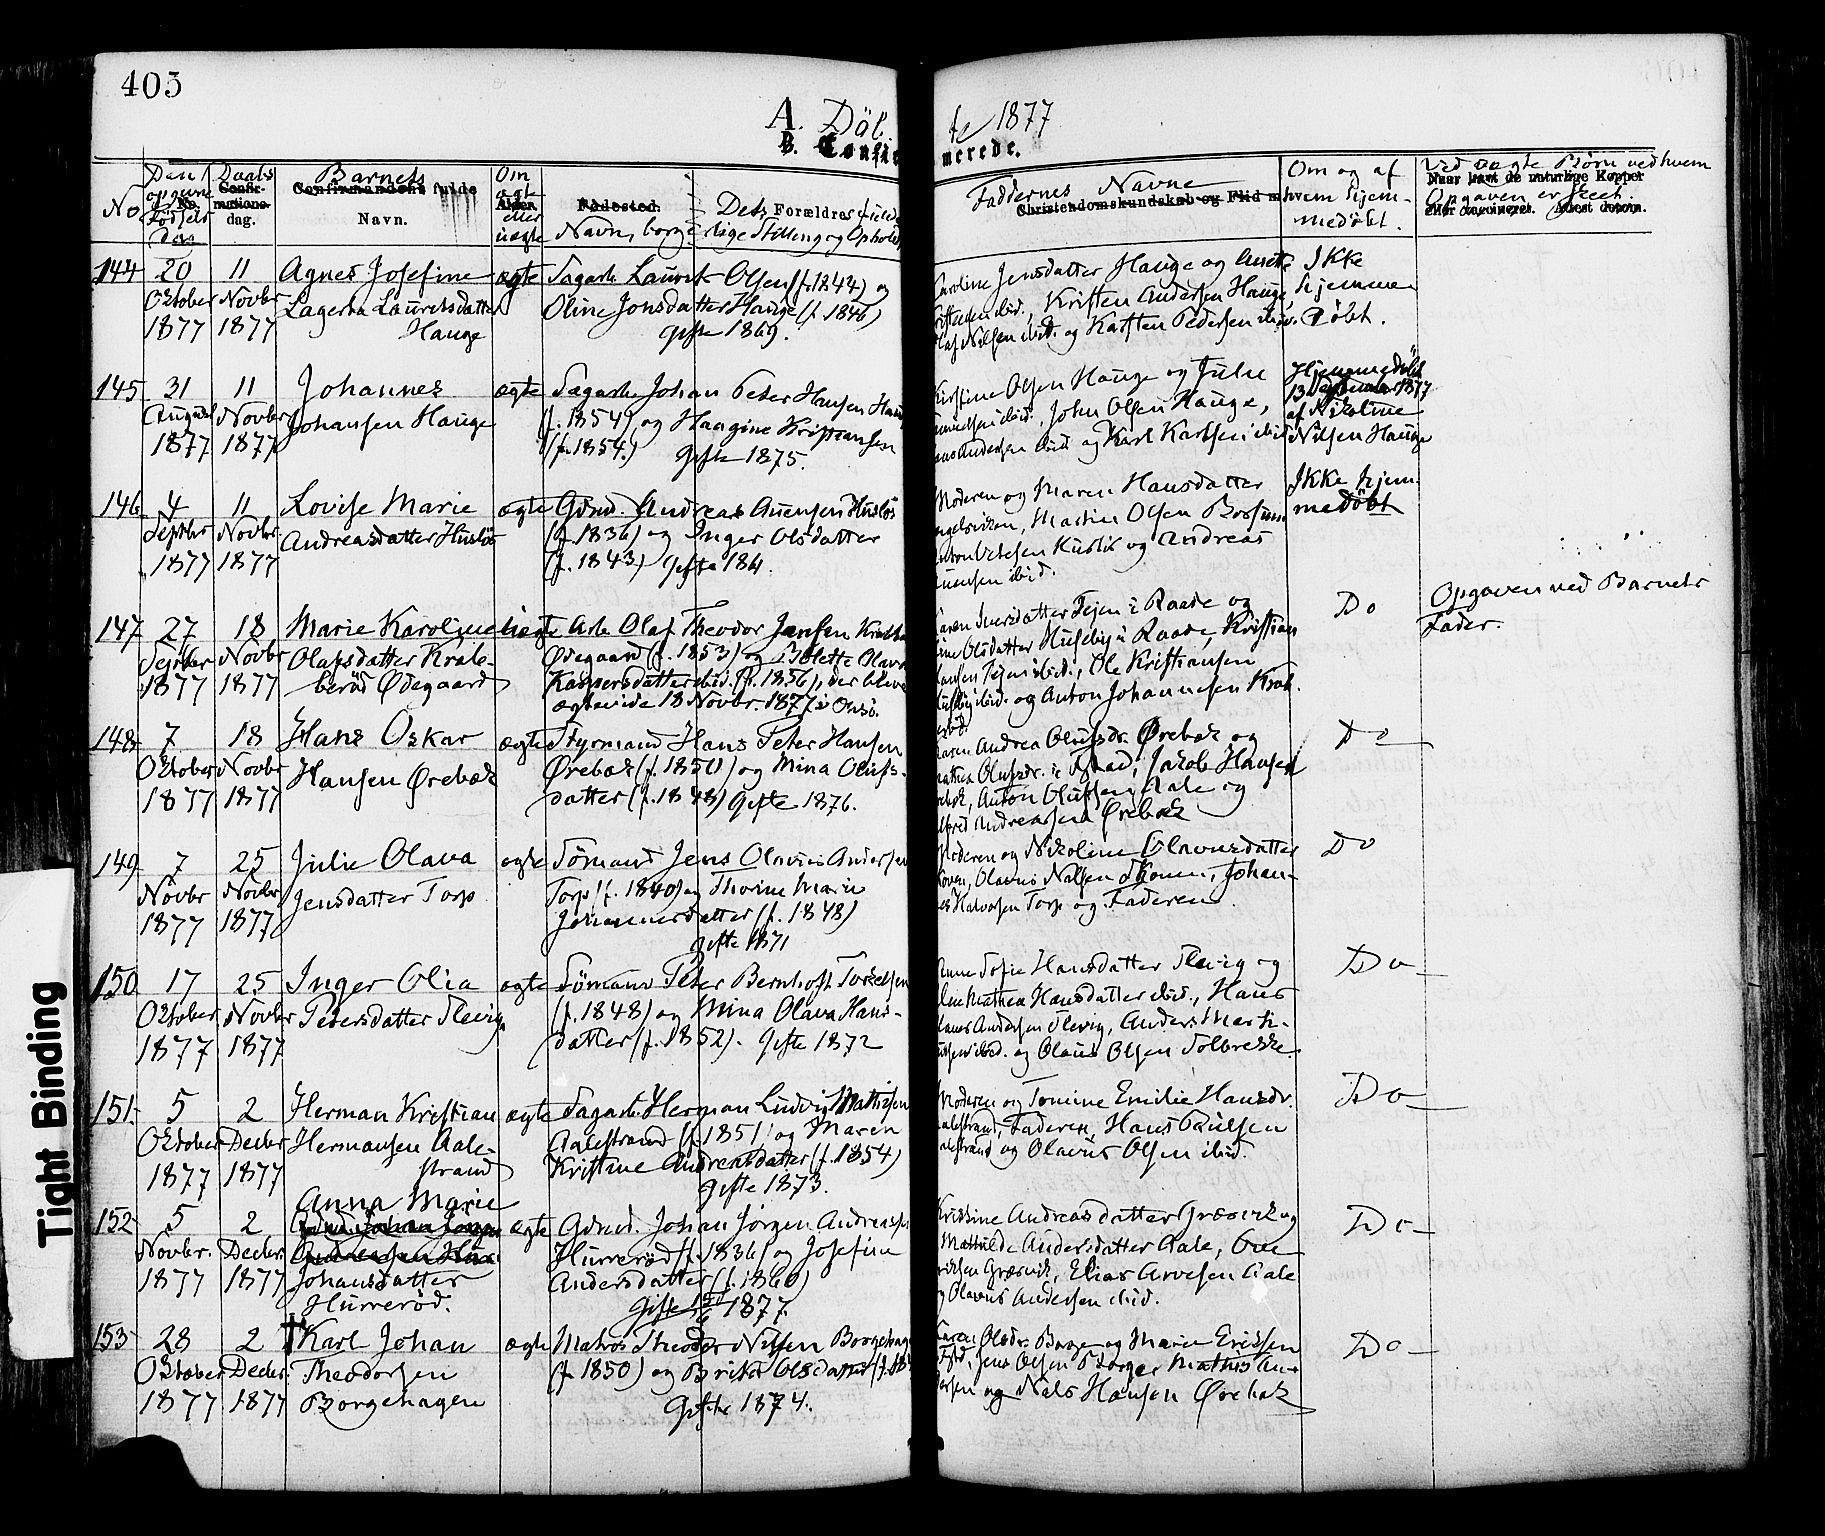 403
A. Döb te 1877
B. Confir merede.
No
Den opgivne Fødselsdag
Daabs dag.
Barnets fulde Navn.
Om ægte eller uægte
Fødested.
Dets Forældres fulde
Navn, borgerlige Stilling og Ophold
Faddernes Navne
Christendomskundskab og Flid m
Om og af hvem hjemmedöbt.
Ved uægte Børn ved hvem Opgaven er skeet.
144 20 11 Agnes Josefine ægte Sagarb. Laurits Olsen (f. 1844) og
Oktober Novbr Lagertha Lauritsdatter Oline Jonsdatter Hauge (f. 1846)
1877 1877 Hauge gifte 1869.
Caroline Jensdatter Hauge og Anette Ikke
ibid., Kristen Andersen Hauge, hjemme
Olaf Nilsen ibid. og Karsten Pedersen ibid. döbt.
145 31 11 Johannes ægte Sagarb. Johan Peter Hansen
August Novbr Johansen Hauge (f. 1854) og Haagine Kristiansen
1877 1877 (f. 1854.) Gifte 1875.
Kirstine Olsen Hauge og Julie Hjemmedöbt
ibid., John Olsen Hauge, 13 September 1877
Andersen ibid og Karl Karlsen ibid af Nikoline
Nilsen Hauge
146 4 11 Lovise Marie ægte Gdmd. Andreas Auensen Huslös
Septbr Novbr Andreasdatter Huslös (f. 1836) og Inger Olsdatter
1877 1877 (f. 1843) gifte 1861.
Moderen og Maren Hansdatter Ikke hjem-
Engelsviken, Martin Olsen medöbt
Huslös og Andreas
Auensen ibid.
147 27 18 Marie Karoline uægte Arb. Olaf Theodor Jansen
Septbr Novbr Olafsdatter Krabberöd Ødegaard Ødegaard (f. 1853) og Olava
1877 1877 Kaspersdatter ibid. (f. 1856), der bleve
ægteviede 18 Novbr. 1877 i Onsö.
Karen Iversdatter Tejen i Raade og Do Opgaven ved Barnets
Olsdatter Huseby i Raade, Kristian Fader.
Hansen Tejen ibid., Ole Kristiansen
Huseby ibid. og Anton Johannesen Krab-
beröd.
148 7 18 Hans Oskar ægte Styrmand Hans Peter Hansen
Oktober Novbr Hansen Ørebæk Ørebæk (f. 1850) og Mina Olufs-
1877 1877 datter (f. 1848) gifte 1876.
Karen Andrea Olufsdr. Ørebæk og Do
Mathea Olufsdr. i Jakob Hansen
Ørebæk, Anton Olufsen Aale og
Alfred Andreassen Ørebæk
149 7 25 Julie Olava ægte Sömand Jens Olavus Andersen
Novbr Novbr Jensdatter Torp Torp (f. 1840) og Thorine Marie
1877 1877 Johannesdatter (f. 1848)
gifte 1871
Moderen og Nikoline Olavusdatter Do
Olavus Nilsen Johan-
nes Halvorsen Torp og Faderen.
150 17 25 Inger Olia ægte Sömand Peter Bernhoft Torkelsen
Oktober Novbr Petersdatter Slevig (f. 1848) og Mina Olava Hans-
1877 1877 datter (f. 1852). Gifte 1872
Anne Sofie Hansdatter Slevig og Do
Mathea Hansdatter ibid., Hans
Andersen Slevig, Anders Marti-
ibid. og Olaus Olsen Solbrekke.
151 5 2 Herman Kristian ægte Sagarb. Herman Ludvig Mathisen
Oktober Decbr Hermansen Aale- Aalestrand (f. 1851) og Maren
1877 1877 strand Kristine Andreasdatter (f. 1854)
gifte 1873.
Moderen og Tomine Emilie Hansdr. Do
Aalestrand, Faderen, Hans Paulsen
Aalestrand og Olavus Olsen ibid.
152 5 2 Anna Marie ægte Gdmd. Johan Jörgen Andreassen
Novbr. Decbr. Johansdatter Hurreröd (f. 1836) og Josefine
1877 1877 Hurreröd. Andersdatter (f. 1860)
Gifte 1877.
Kristine Andreasdatter Græsvik og Do
Mathilde Andersdatter Aale, Ove
Græsvik, Elias Arvesen Aale
og Olavus Andersen ibid.
153 28 2 † Karl Johan ægte Matros Theodor Nilsen Borgehagen
Oktober Decbr. Theodorsen (f. 1850) og Brita Olsdatter
1877 1877 Borgehagen Gifte 1874.
Karen Olsdr. Borge og Marie Eriksen Do
Jens Olsen Borge, Mathis An-
dersen og Nils Hansen Ørebæk
Tight Binding